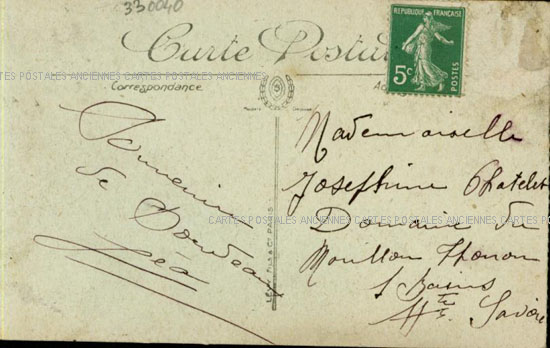 330040
Carte Postale
RÉPUBLIQUE FRANÇAISE
5c
POSTES
CARTES POSTALES ANCIENNES CARTES POSTALES ANCIENNES CARTES POSTALES ANCIENNES
Correspondance
Souvenir
de Bordeaux
Léa
Mademoiselle
Josephine Chatelet
Domaine du
Mouillon Thonon
s Bains
Hte Savoie
CARTES POSTALES ANCIENNES CARTES POSTALES ANCIENNES CARTES POSTALES
FILS & Cie PARIS